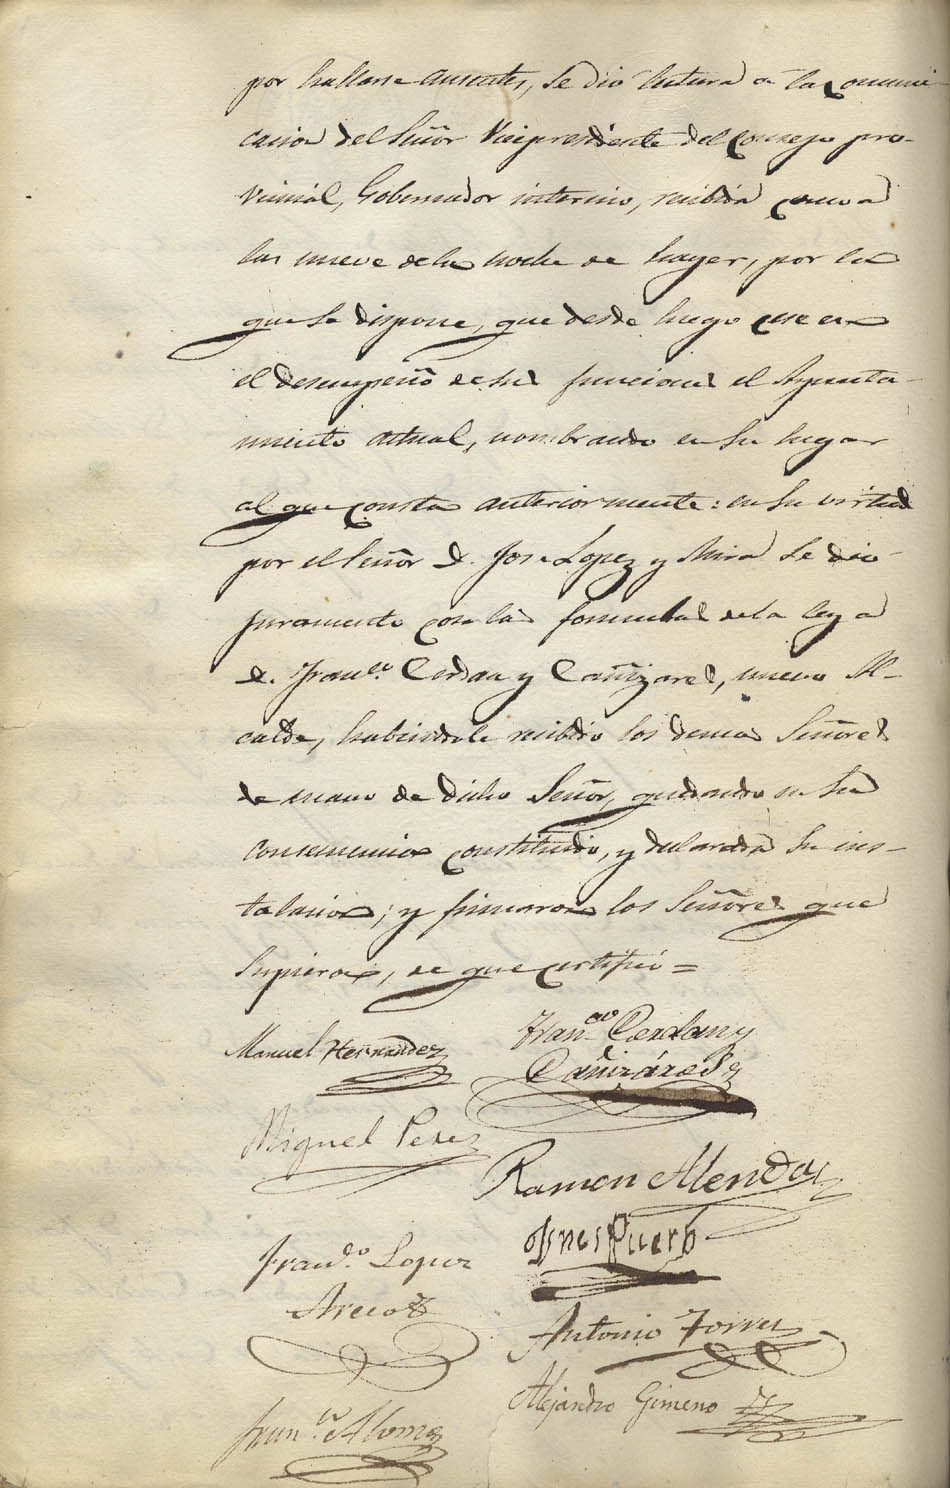 por hallarse ausentes, se dio lectura a la comuni
cacion del Señor Vicepresidente del Consejo pro-
vincial, Gobernador interino, recibida como a
las nueve de la noche de hayer, por la
que se dispone, que desde luego cese en
el desempeño de sus funciones el Ayunta-
miento actual, nombrando en su lugar
al que consta anteriormente: en su virtud
por el Señor D. Jose Lopez y Mira se dio
juramento con las formulas de la ley a
D. Franco. Cerdan y Cañizares, nuevo Al-
calde, habiendole recibido los demas Señores
de mano de dicho Señor, quedando en su
consecuencia constituido, y declarada su ins-
talacion; y firmaron los Señores que
supieron, de que certifico =
Manuel Hernandez
Franco. Cerdan y
Cañizáres
Miguel Perez
Ramon Alenda
Franco. Lopez
Puerto
Antonio Torres
Alejandro Gimeno
Franco.